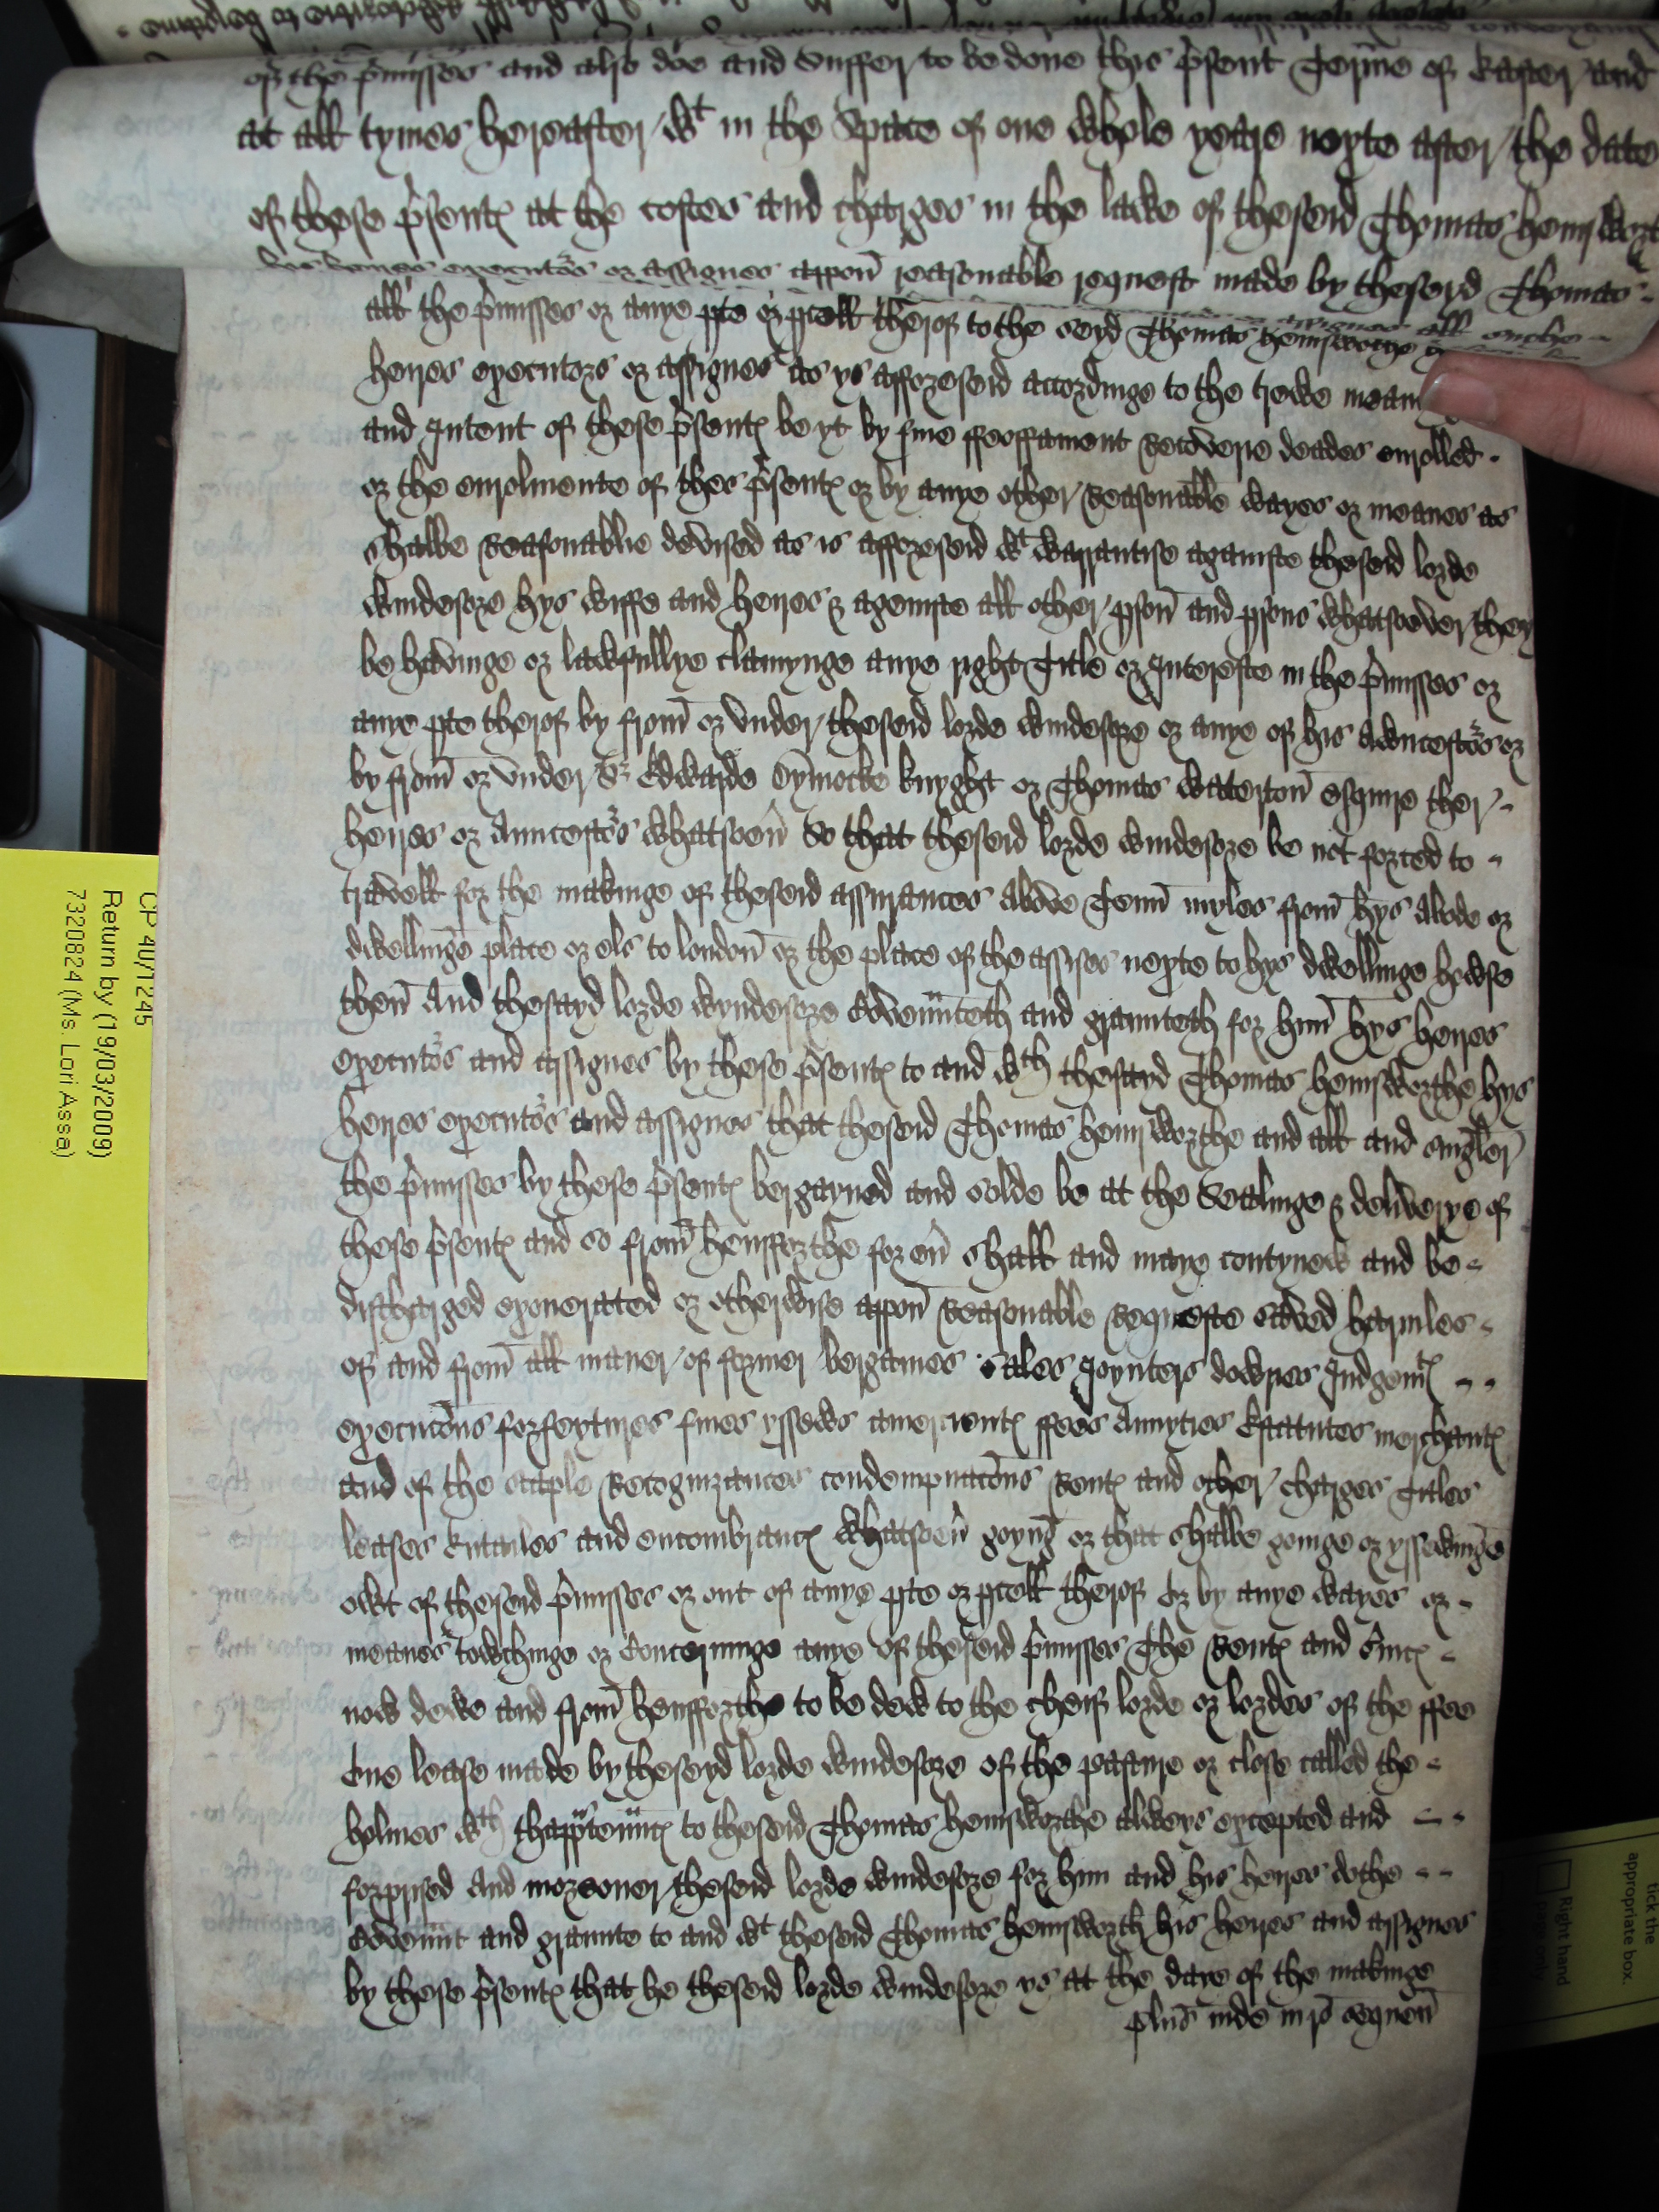 of the p'misses and also doe and suffer to be done this p'sent Terme of Easter and
at all tymes hereafter wt in the space of one whole yeare nexte after the date
of these p'sentes at the costes and charges in the lawe of theseid Thomas hemsworthe
executors or assignes appon reasonable request made by theseyd Thomas
all the p'misses or anye pte or pcell therof to the seyd Thomas hemsworthe
heires executors or assignes as ys afforeseid accordinge to the trewe meaninge
and Intent of these p'sentes be yt by fine ffeoffament Recoverie deades enrolled
or the enrolmente of thes p'sentes or by anye other Reasonable wayes or meanes as
shalbe Reasonablie devised as is afforeseid wt warrantise againste theseid lorde
windesore hys wiffe and heires & ageinste all other pson and psons whatsoever they
be havinge or lawfullye clamynge anye right Title or Intereste in the p'misses or
anye pte therof by from or under theseid lorde windesore or anye of his Awncestors or
by from or under Sr Edwarde Dymocke knyght or Thomas watterton esquire ther
heires or Auncestors whatsoeu' So that theseid lorde windesore be not forced to
travell for the makinge of theseid assurances above Tenn myles from hys abode or
dwellinge place or els to london or the place of the assises nexte to hys dwellinge howse
then And thesayd lorde wyndesore Covennteth and graunteth for him hys heires
executors and assignes by these p'sentes to and wth thesayd Thomas hemsworthe hys
heires executors and assignes that theseid Thomas hemsworthe and all and singler
the p'misses by these p'sentes bergayned and solde be at the Sealinge & deliverye of
these p'sentes and so from hensforthe for eu' shall and maye contynew and be
discharged exonerated or otherwise appon Reasonable Requeste saved harmles
of and from all maner of former bergaines sales Joynters dowries Judgemtes
executions forfeytures fines yssews amercientes ffees Annyties Estatutes merchantes
and of the staple Recognizances condempnacons Rentes and other charges Titles
leases Entailes and encombrances whatsoeu' goyng or that shalbe goinge or yssewinge
owt of theseid p'misses or out of anye pte or pcell therof or by anye wayes or
meanes towchinge or Concerninge anye of theseid p'misses The Rentes and s'uices
now dewe and from hensforthe to be dew to the cheif lorde or lordes of the ffee
One lease made by theseyd lorde windesore of the pasture or close called the
holmes wth thapptennces to theseid Thomas hemsworthe alweys excepted and
forprised And moreouer theseid lorde windesore for him and his heires dothe
Covennt and graunte to and wt theseid Thomas hemsworth his heires and assignes
by these p'sentes that he theseid lorde windesore ys at the daye of the makinge
plus inde in ro sequen
CP 40/1245
Return by (19/03/2009)
7320824 (Ms. Lori Assa)
tick the
appropriate box.
Right hand